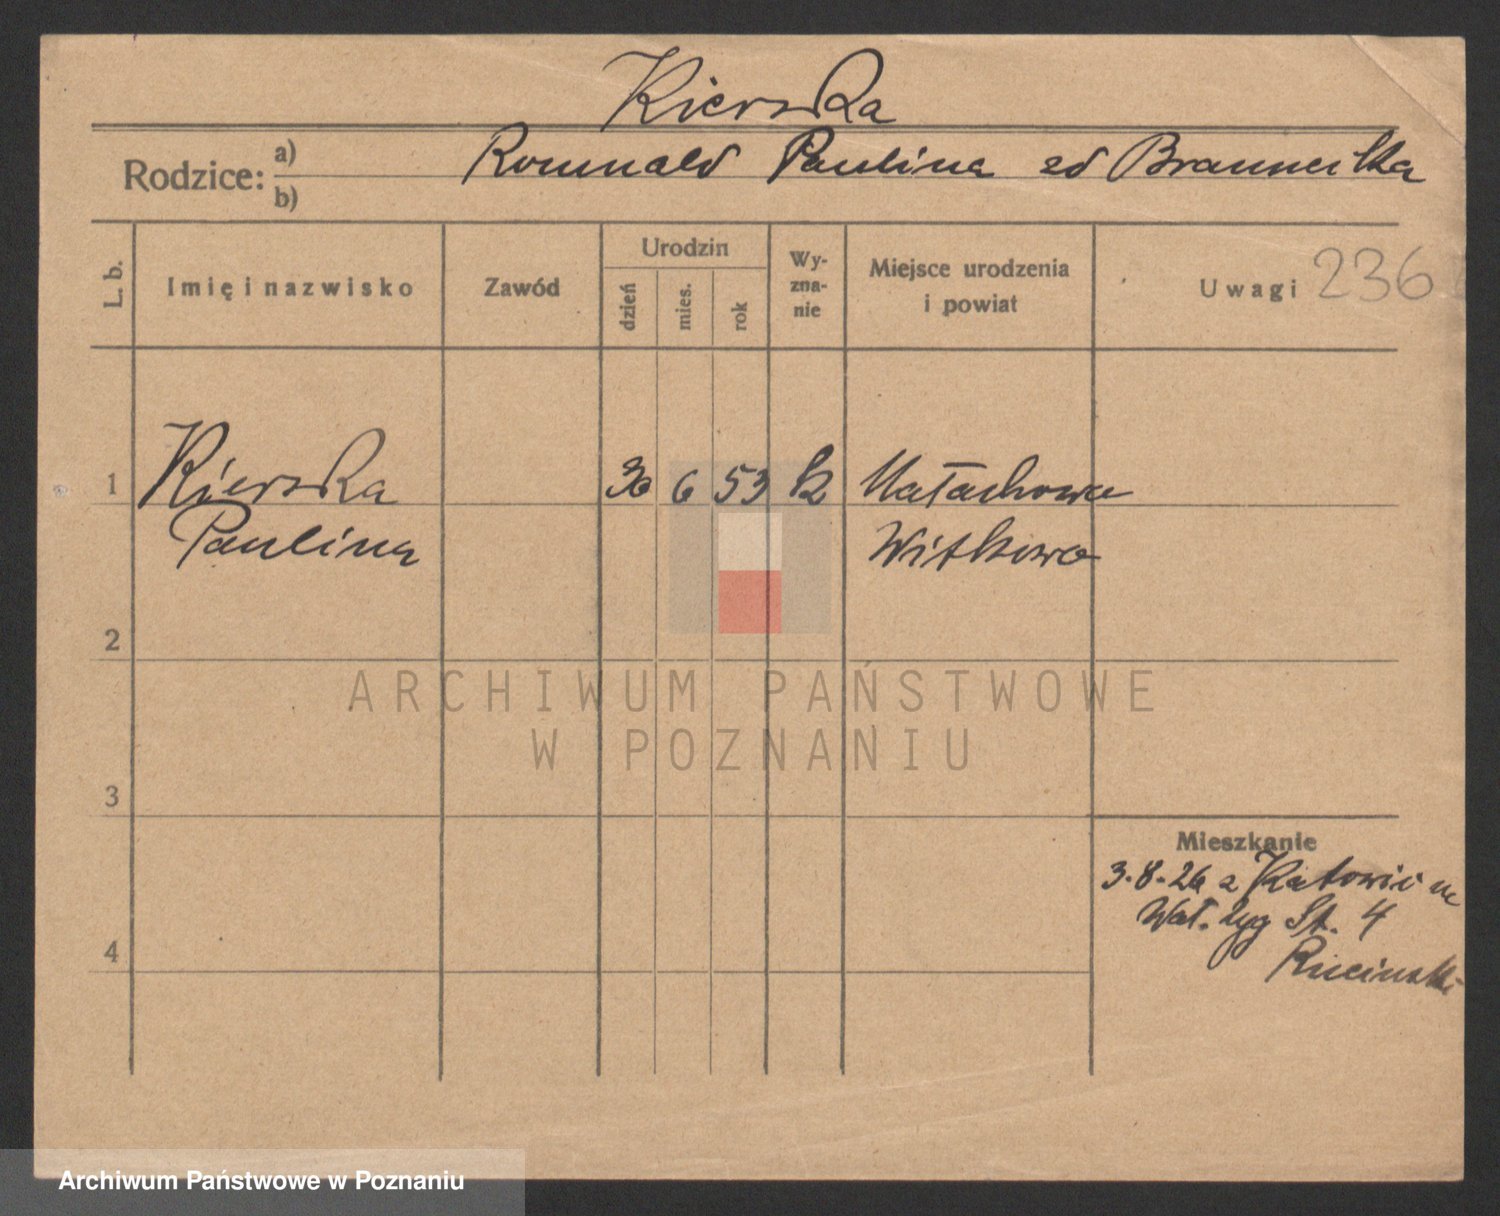 Kierska
Rodzice: a) Romuald Paulina zd Braunerska
b)
L. b. Imię i nazwisko Zawód Urodzin dzień mies. rok Wyznanie Miejsce urodzenia i powiat Uwagi 236
1 Kierska 30 6 53 k Małachowo
Paulina Witkowo
2
ARCHIWUM PAŃSTWOWE
W POZNANIU
3
Mieszkanie
3.8.26 z Katowic
Wał. Zyg St. 4
4 Ruciński
Archiwum Państwowe w Poznaniu